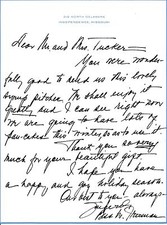 219 NORTH DELAWARE
INDEPENDENCE, MISSOURI
Dear Mr. and Mrs. Tucker -
You were wonder-
fully good to send us this lovely
syrup pitcher. We shall enjoy it
greatly and I can see right now
we are going to have lots of
pancakes this winter so as to use it
Thank you so very
much for your beautiful gift.
I hope you have
a happy and gay holiday season.
Our best to you always
Sincerely
Bess W. Truman